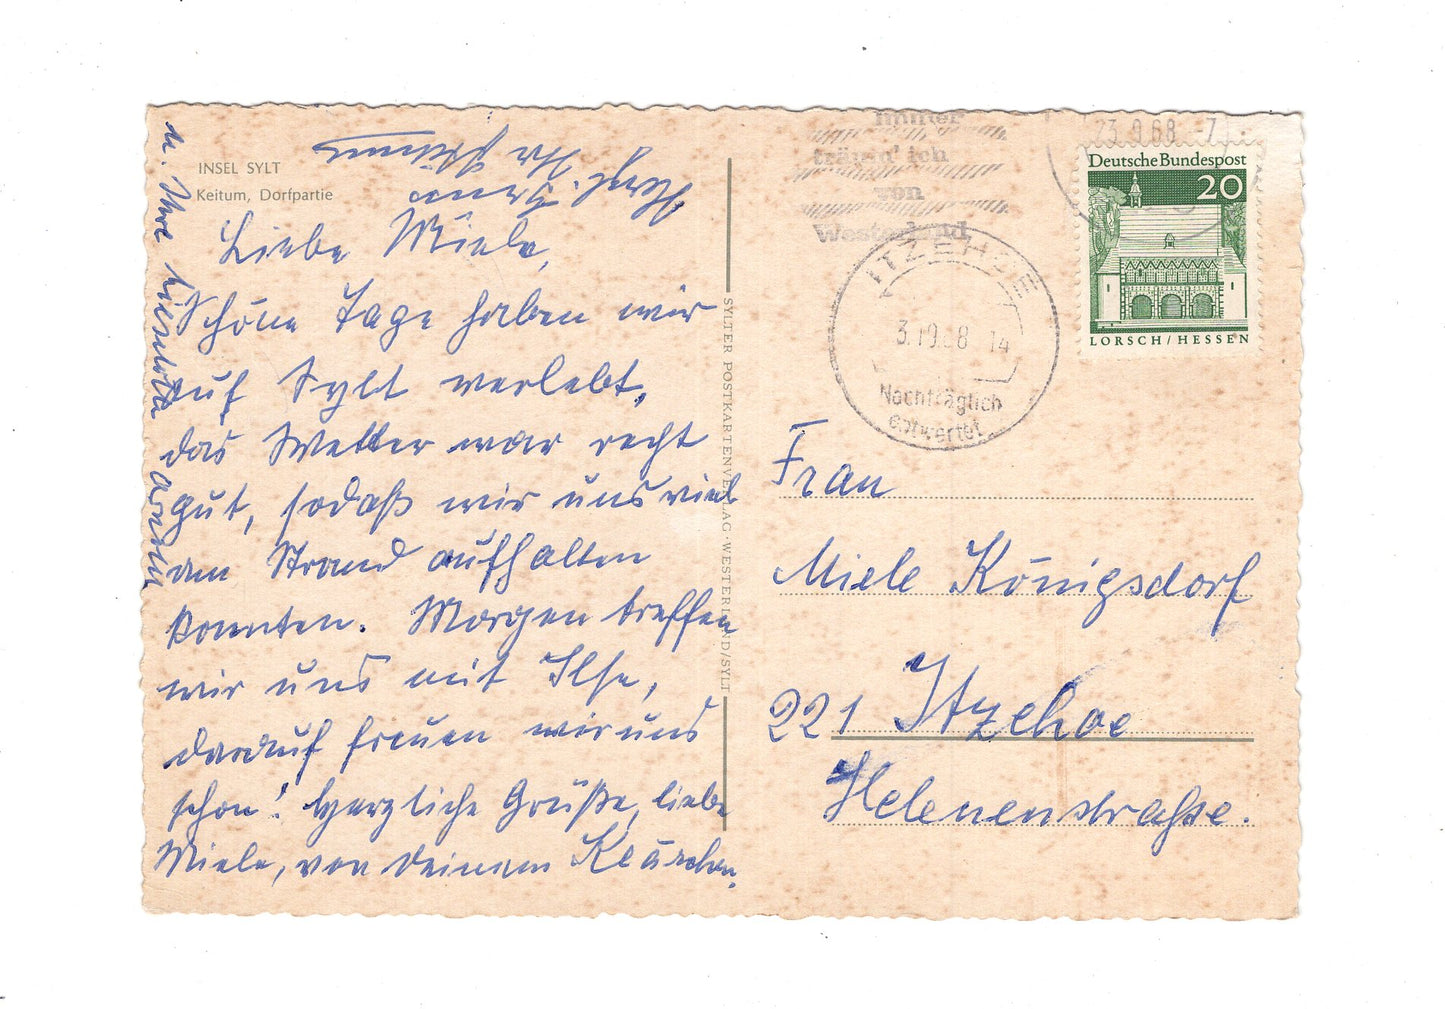 INSEL SYLT
Keitum, Dorfpartie
Liebe Miele,
Schöne Tage haben wir
auf Sylt verlebt,
das Wetter war recht
gut, sodaß wir uns viel
am Strand aufhalten
konnten. Morgen treffen
wir uns mit Ilse,
darauf freuen wir uns
schon! Herzliche Grüße, liebe
Miele, von Deinem Klärchen.
u. Ihre Liselotte
Herzl. Grüße
Ihr
SYLTER POSTKARTENVERLAG · WESTERLAND/SYLT
immer
träum' ich
von
Westerland
23.9.68.-7
Deutsche Bundespost
20
LORSCH/HESSEN
ITZEHOE
14
Nachträglich
entwertet
Frau
Miele Königsdorf
221 Itzehoe
Helenenstraße.